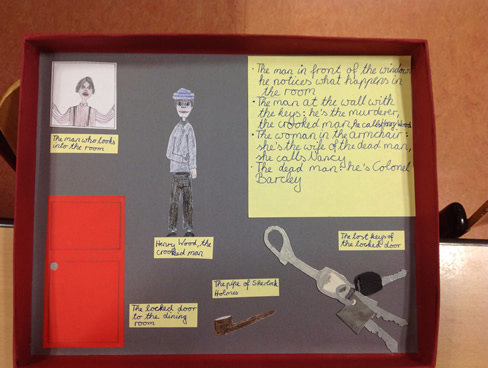 · The man in front of the window:
he notices what happens in
the room
· The man at the wall with
the keys: he's the murderer,
the crooked man, he calls Henry Wood
· The woman in the armchair:
she's the wife of the dead man,
she calls Nancy
· The dead man: he's Colonel
Barcley
The man who looks
into the room
Henry Wood, the
crooked man
The lost keys of
the locked door
The pipe of Sherlock
Holmes
The locked door
to the dining
room